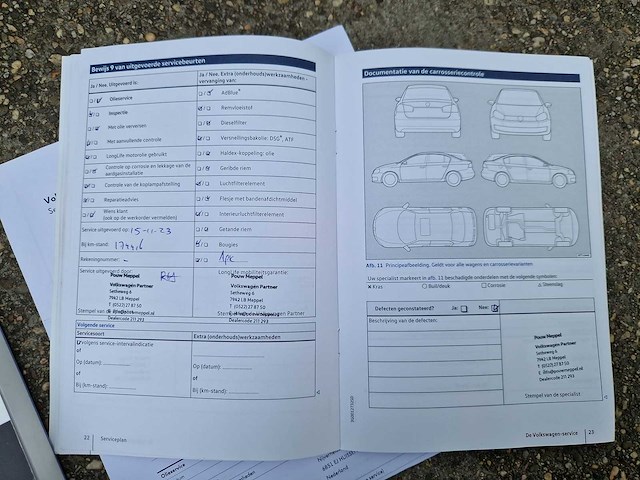 Bewijs 9 van uitgevoerde servicebeurten
Ja / Nee. Uitgevoerd is:
Ja / Nee. Extra (onderhouds)werkzaamheden - vervanging van:
Olieservice
AdBlue®
Inspectie
Remvloeistof
Met olie verversen
Dieselfilter
Met aanvullende controle
Versnellingsbakolie: DSG®, ATF
LongLife motorolie gebruikt
Haldex-koppeling: olie
Controle op corrosie en lekkage van de
aardgasinstallatie
Geribde riem
Controle van de koplampafstelling
Luchtfilterelement
Reparatieadvies
Flesje met bandenafdichtmiddel
Wens klant:
(ook op de werkorder vermelden)
Interieurluchtfilterelement
Service uitgevoerd op: 15-11-23
Getande riem
Bij km-stand:
Bougies
Rekeningnummer: -
Apk
Service uitgevoerd door:
LongLife mobiliteitsgarantie:
Pouw Meppel
Volkswagen Partner
Setheweg 6
7942 LB Meppel
T (0522) 27 87 50
Dealercode 211 293
Pouw Meppel
Volkswagen Partner
Setheweg 6
7942 LB Meppel
T (0522) 27 87 50
Dealercode 211 293
Volgende service
Servicesoort
Extra (onderhouds)werkzaamheden
volgens service-intervalindicatie
of
Op (datum):
of
Bij (km-stand):
Op (datum):
of
Bij (km-stand):
22
Serviceplan
Documentatie van de carrosseriecontrole
Afb. 11 Principeafbeelding. Geldt voor alle wagens en carrosserievarianten.
Uw specialist markeert in afb. 11 beschadigde onderdelen met de volgende symbolen:
× Kras
○ Buil/deuk
□ Corrosie
△ Steenslag
Defecten geconstateerd?
Ja:
Nee:
Beschrijving van de defecten:
Pouw Meppel
Volkswagen Partner
Setheweg 6
7942 LB Meppel
T (0522) 27 87 50
Dealercode 211 293
Stempel van de specialist
De Volkswagen-service
23
Olieservice
6851 EJ
Nederland